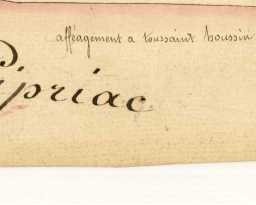 afféagement a toussaint houssin
Pipriac